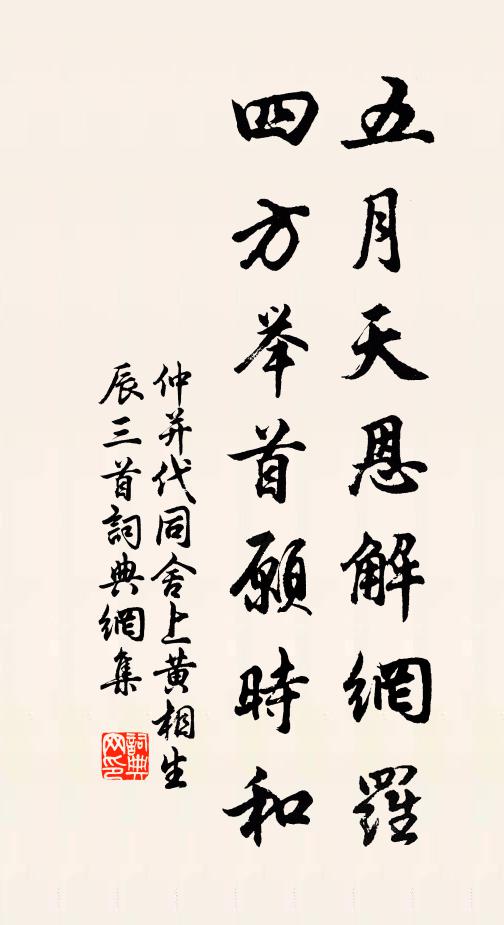 五月天恩解網羅
四方举首願時和
仲并代同舍上黄相生
辰三首詞典網集
詞典网印